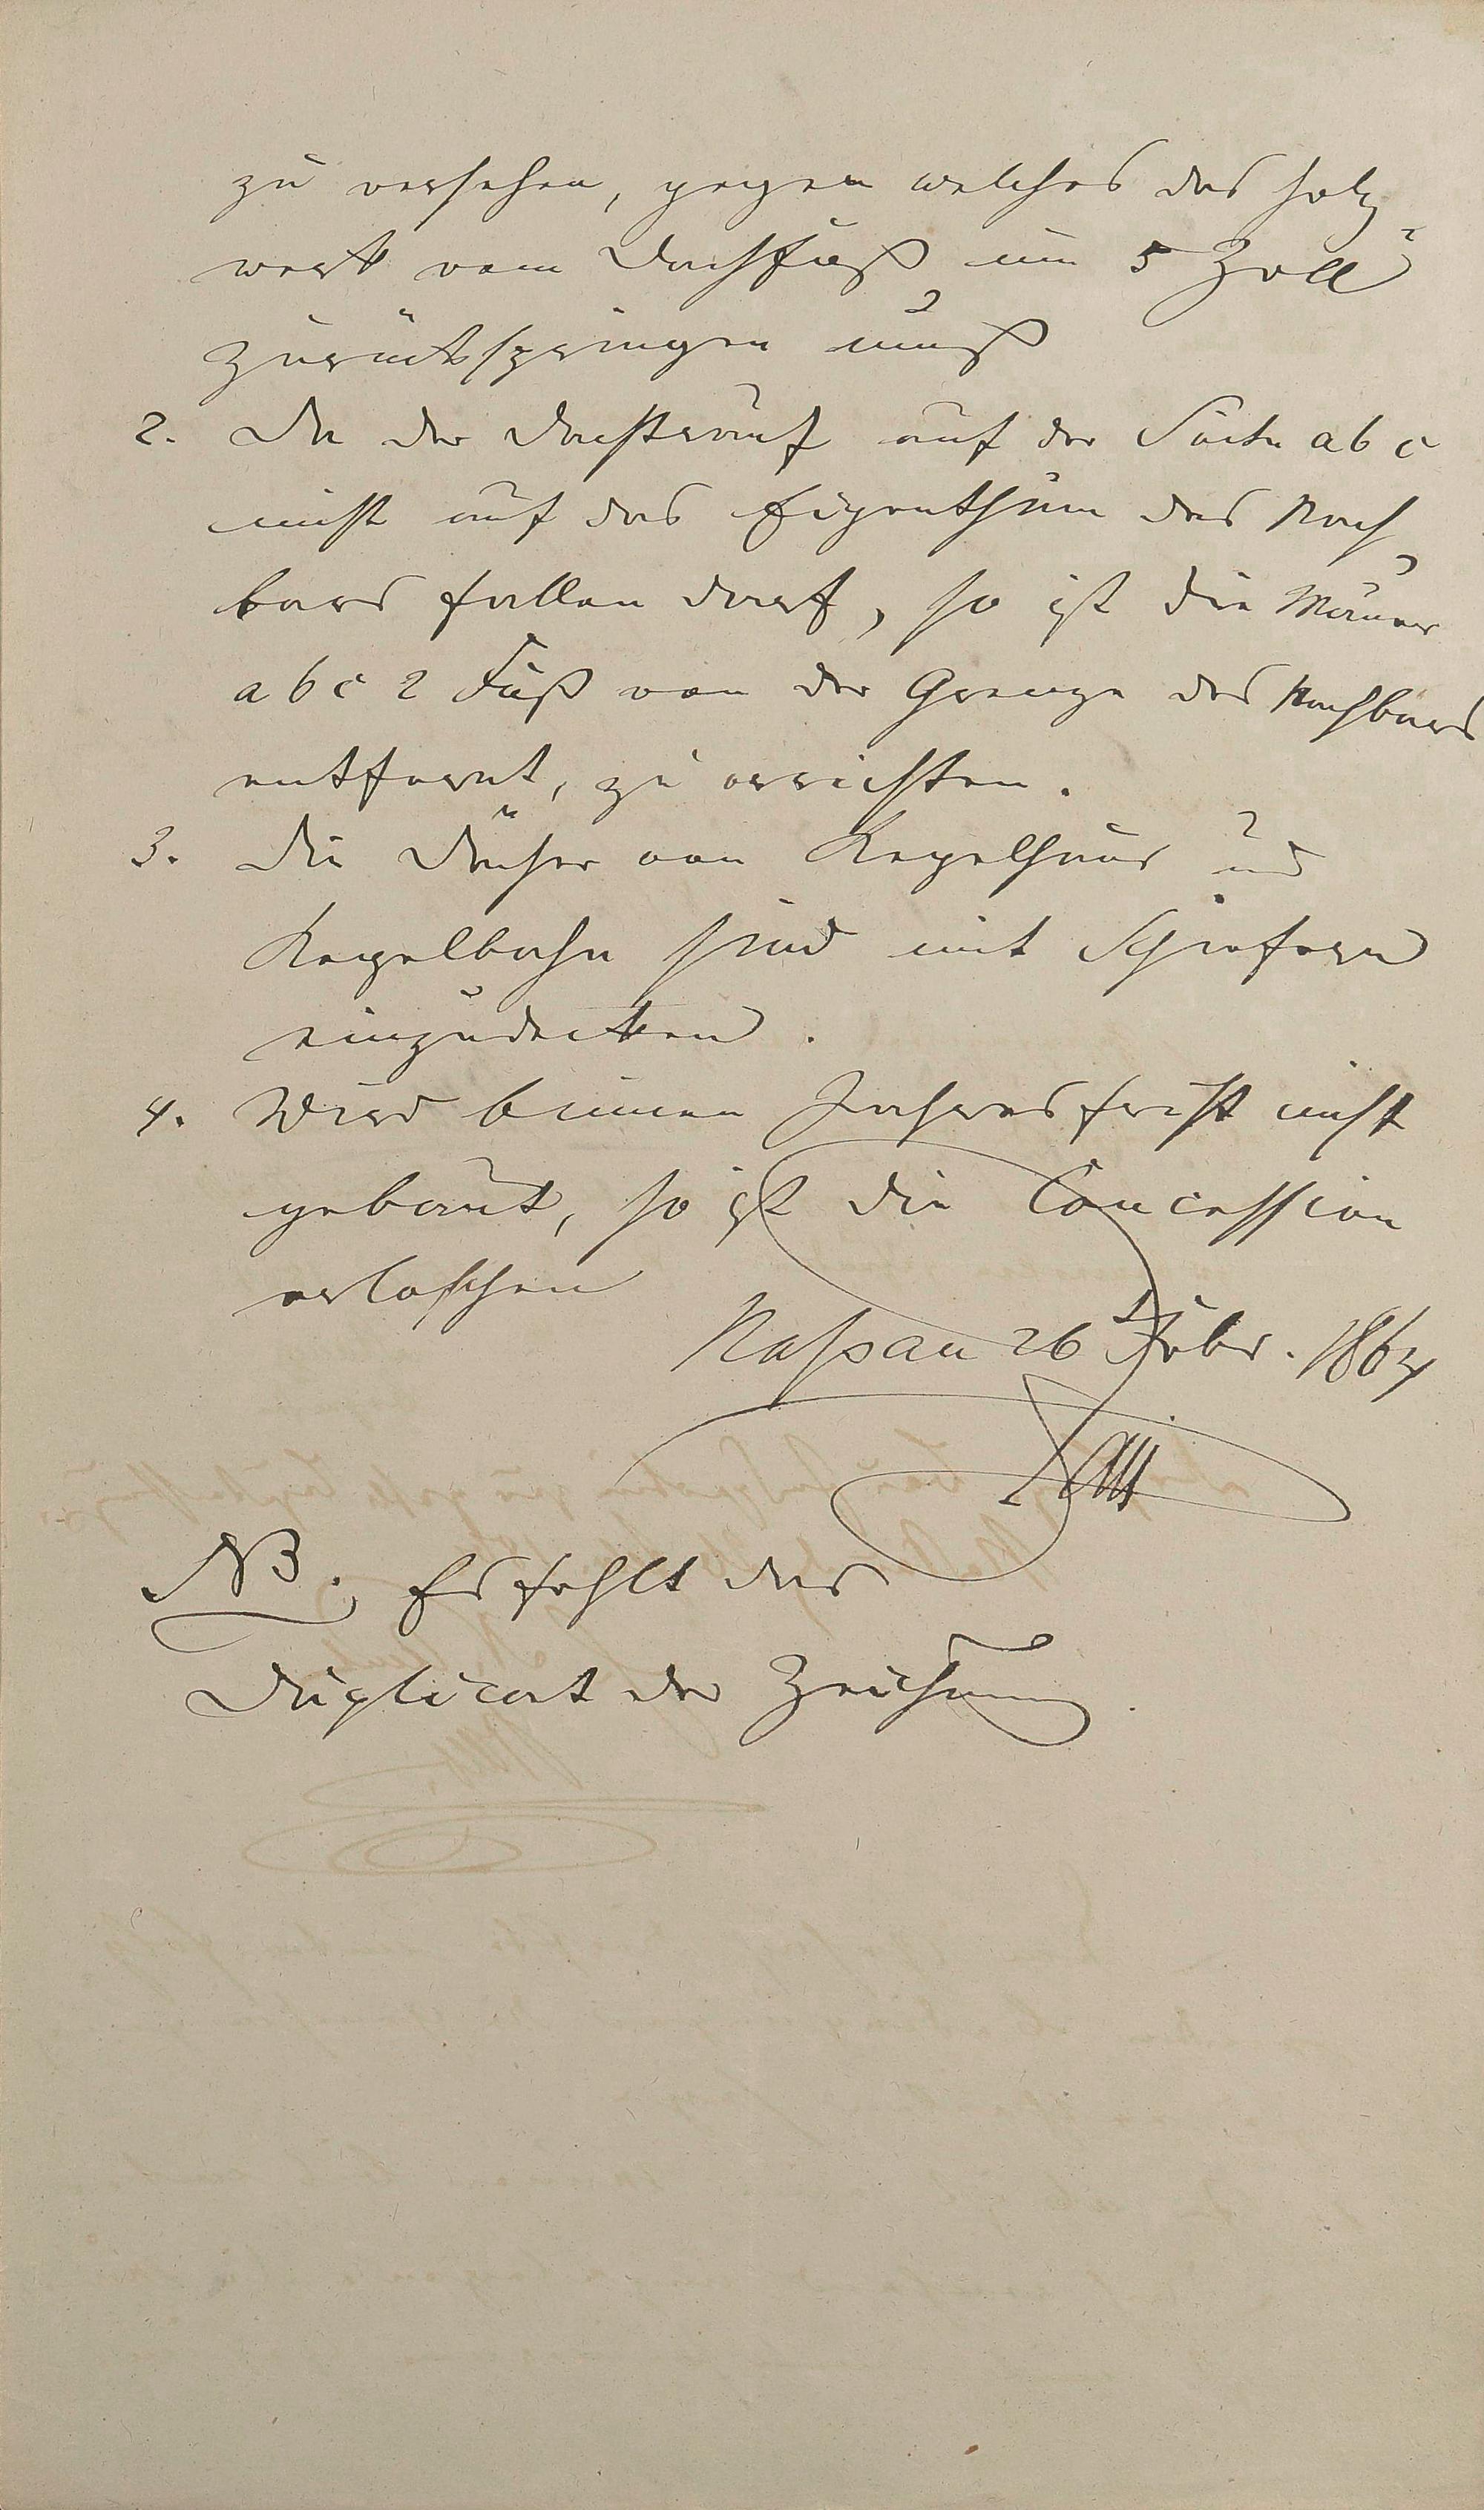 zu versehen, gegen welches das Holz-
werk vom Dachfuß um 5 Zoll
zurückspringen muß
2. Da der Dachtrauf auf der Seite a b c
nicht auf das Eigenthum des Nach-
bars fallen darf, so ist die Mauer
a b c 2 Fuß von der Grenze des Nachbars
entfernt, zu errichten.
3. Die Dächer von Kegelhaus und
Kegelbahn sind mit Schiefern
einzudecken.
4. Wird binnen Jahresfrist nicht
gebaut, so ist die Concession
erloschen
Nassau 26 Febr. 1864
NB. Es fehlt das
Duplicat der Zeichnung.